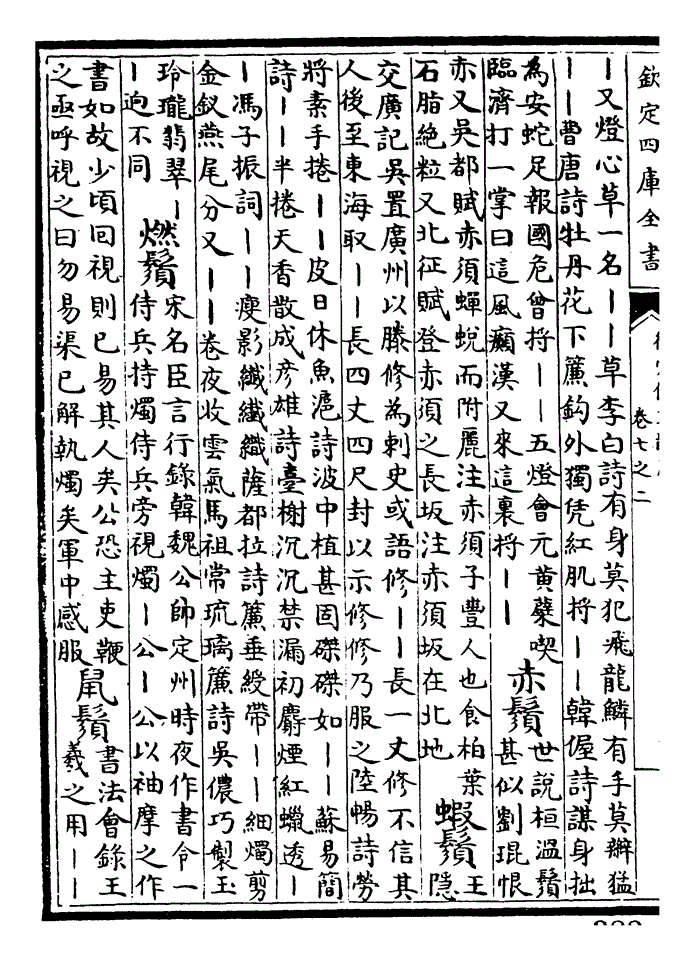 欽定四庫全書
卷七之二
｜又燈心草一名｜｜草李白詩有身莫犯飛龍鱗有手莫辮猛
｜｜曹唐詩牡丹花下簾鈎外獨凭紅肌捋｜｜韓偓詩謀身拙
為安蛇足報國危曾捋｜｜五燈會元黄蘗喫
臨濟打一掌曰這風癲漢又來這裏捋｜｜
赤鬚
世說桓温鬚
甚似劉琨恨
赤又吳都賦赤須蟬蛻而附麗注赤須子豐人也食柏葉
石脂絶粒又北征賦登赤須之長坂注赤須坂在北地
蝦鬚
王
隱
交廣記吳置廣州以滕修為刺史或語修｜｜長一丈修不信其
人後至東海取｜｜長四丈四尺封以示修修乃服之陸暢詩勞
將素手捲｜｜皮日休魚滬詩波中植甚固磔磔如｜｜蘇易簡
詩｜｜半捲天香散成彦雄詩臺榭沉沉禁漏初麝煙紅蠟透｜
｜馮子振詞｜｜瘦影纖纖織薩都拉詩簾垂綬帶｜｜細燭剪
金釵燕尾分又｜｜卷夜收雲氣馬祖常琉璃簾詩吳儂巧製玉
玲瓏翡翠｜
｜逈不同
燃鬚
宋名臣言行錄韓魏公師定州時夜作書令一
侍兵持燭侍兵旁視燭｜公｜公以袖摩之作
書如故少頃回視則已易其人矣公恐主吏鞭
之亟呼視之曰勿易渠已解執燭矣軍中感服
鼠鬚
書法會錄王
羲之用｜｜